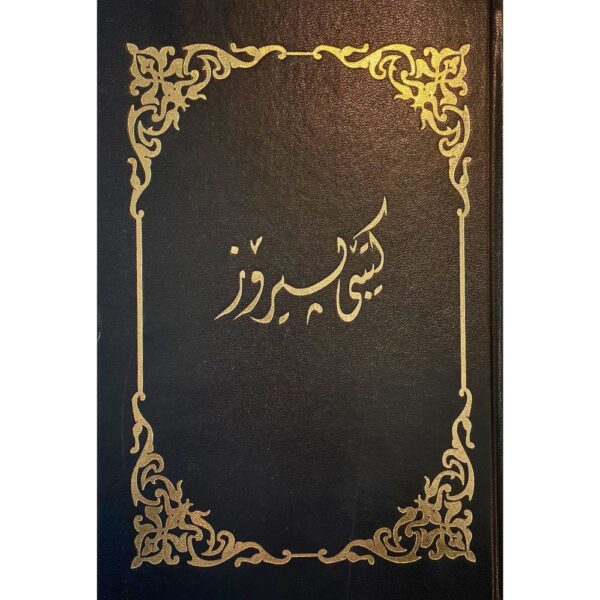 کتێبی پیرۆز